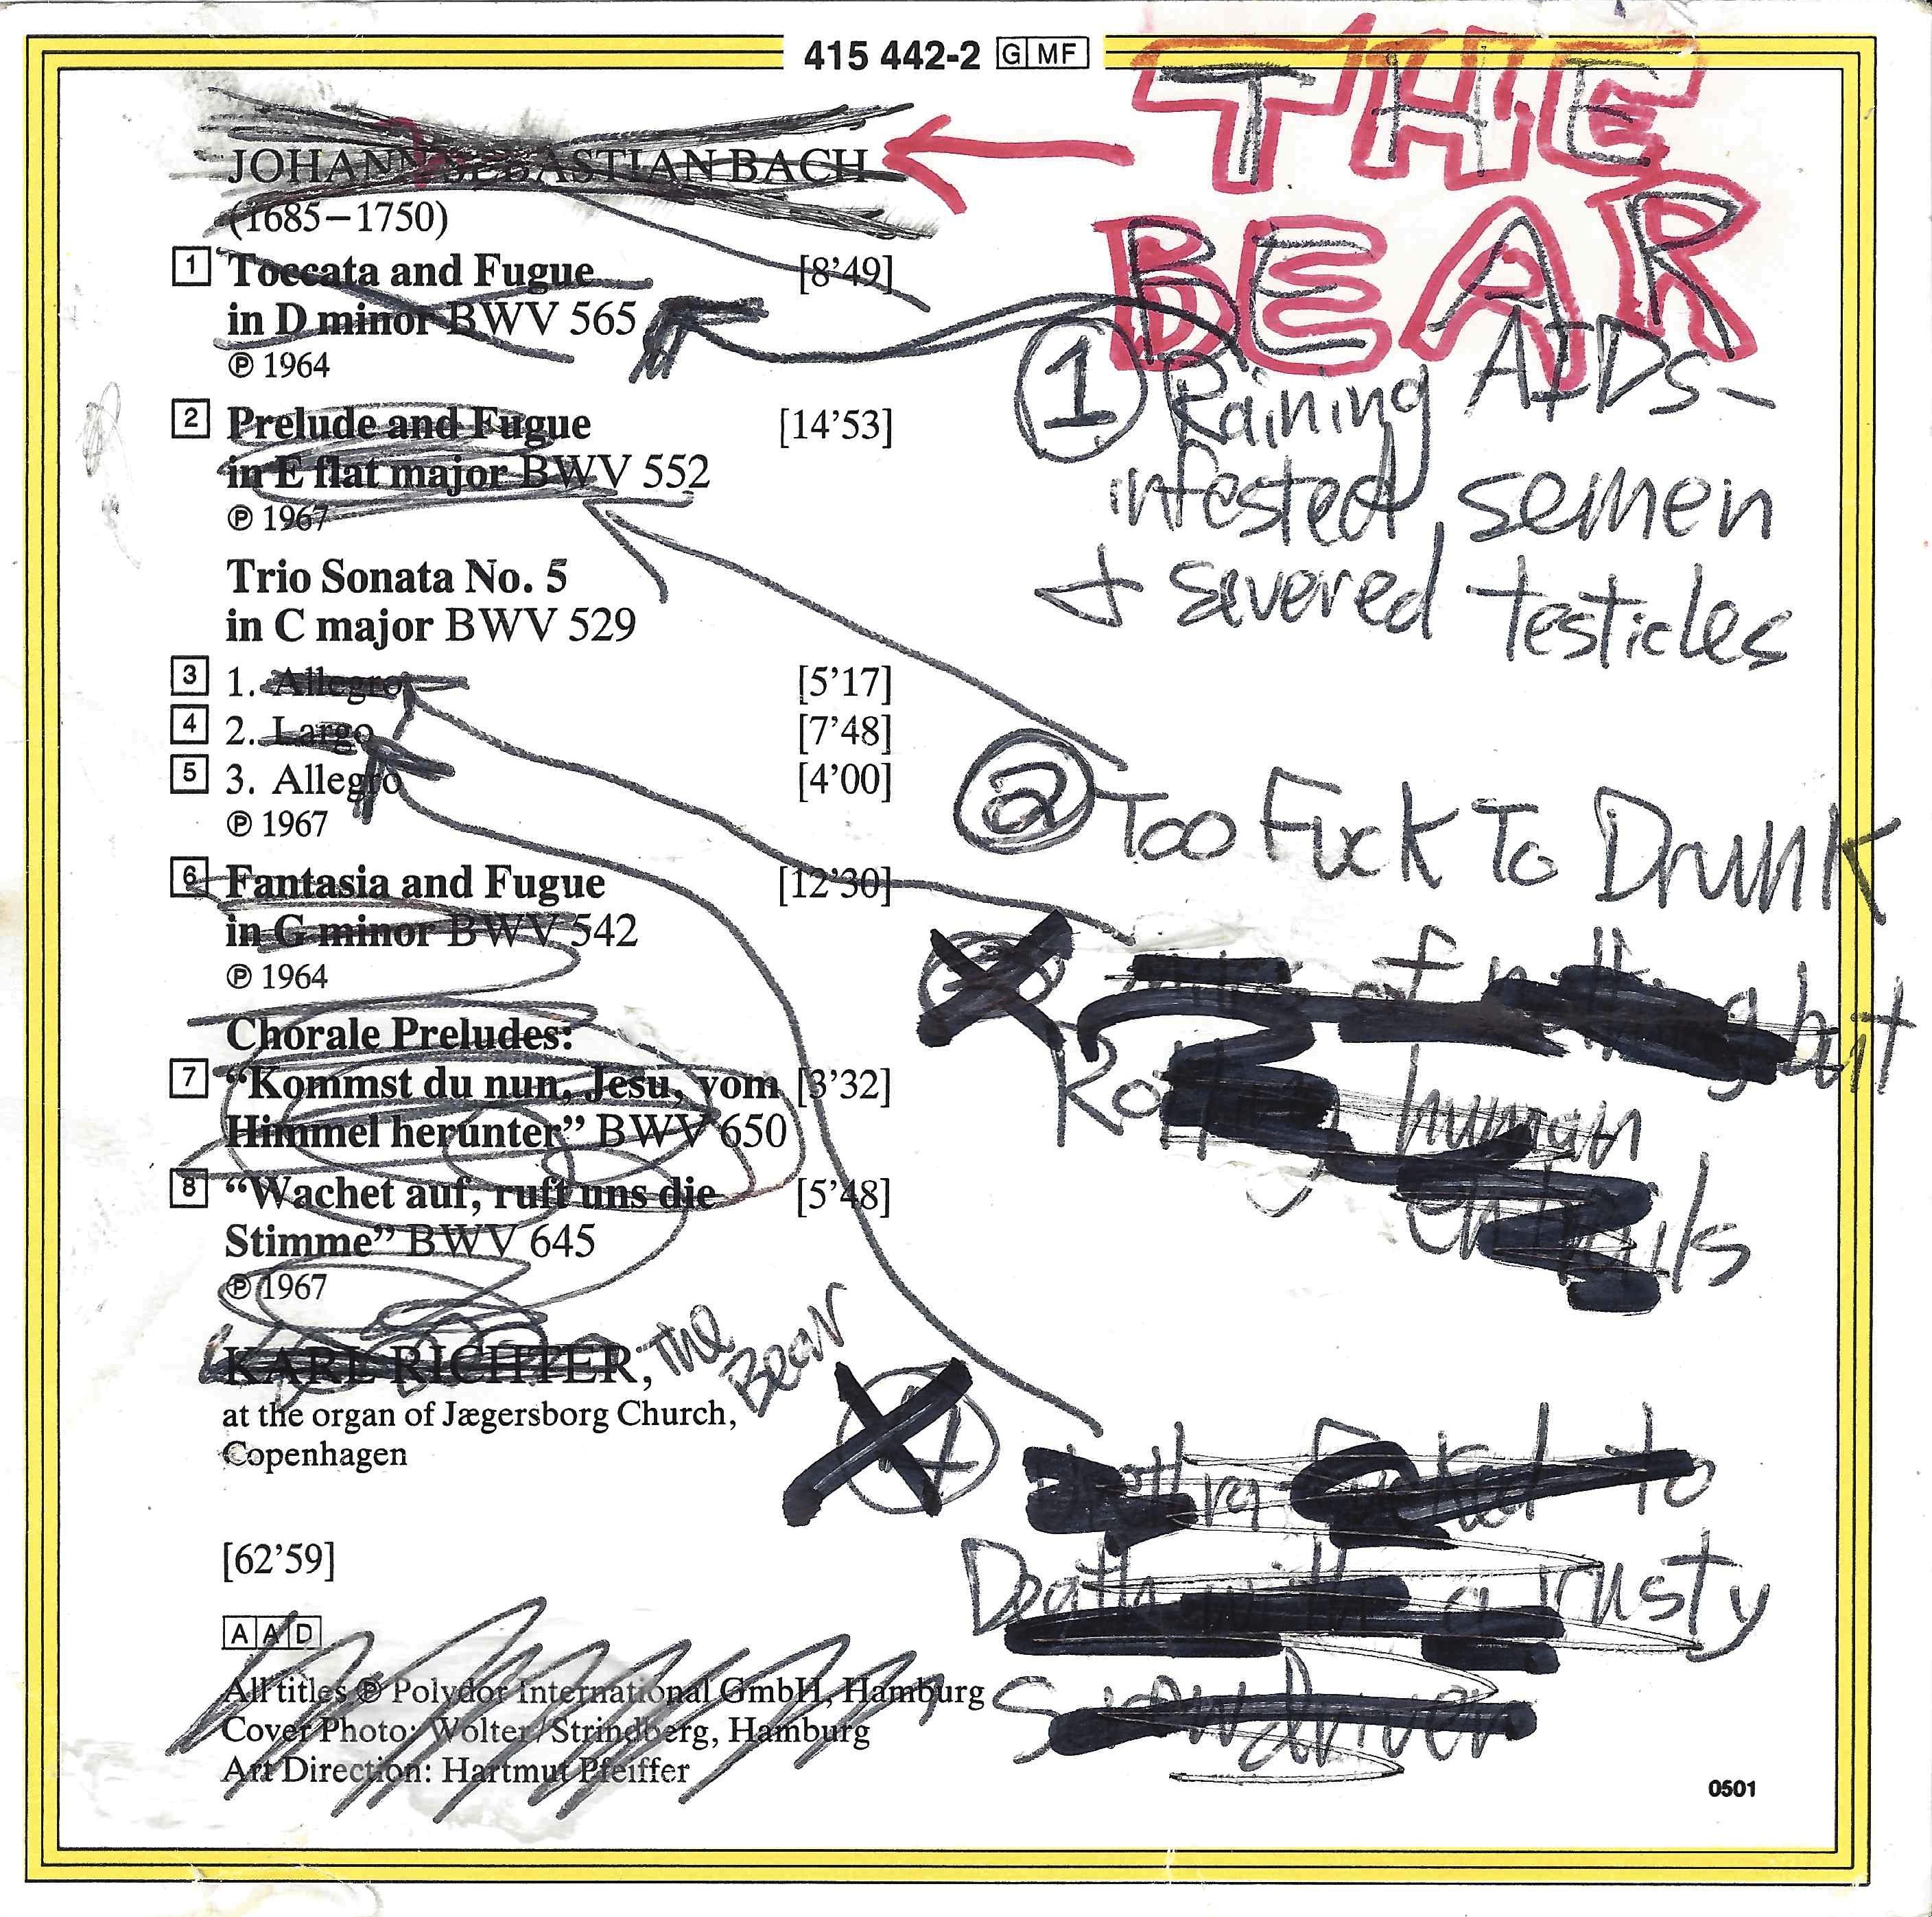 415 442-2 G MF
THE
BEAR
JOHANN SEBASTIAN BACH
(1685–1750)
1 Toccata and Fugue [8’49]
in D minor BWV 565
℗ 1964
2 Prelude and Fugue [14’53]
in E flat major BWV 552
℗ 1967
Trio Sonata No. 5
in C major BWV 529
3 1. Allegro [5’17]
4 2. Largo [7’48]
5 3. Allegro [4’00]
℗ 1967
6 Fantasia and Fugue [12’30]
in G minor BWV 542
℗ 1964
Chorale Preludes:
7 “Kommst du nun, Jesu, vom [3’32]
Himmel herunter” BWV 650
8 “Wachet auf, ruft uns die [5’48]
Stimme” BWV 645
℗ 1967
KARL RICHTER, The
Bear
at the organ of Jægersborg Church,
Copenhagen
[62’59]
AAD
All titles ℗ Polydor International GmbH, Hamburg
Cover Photo: Wolter/Strindberg, Hamburg
Art Direction: Hartmut Pfeiffer
1 Raining AIDs-
infested semen
+ severed testicles
2 Too Fuck To Drunk
of nothing but
Rotting human
entrails
to
Death with a rusty
Screwdriver
0501